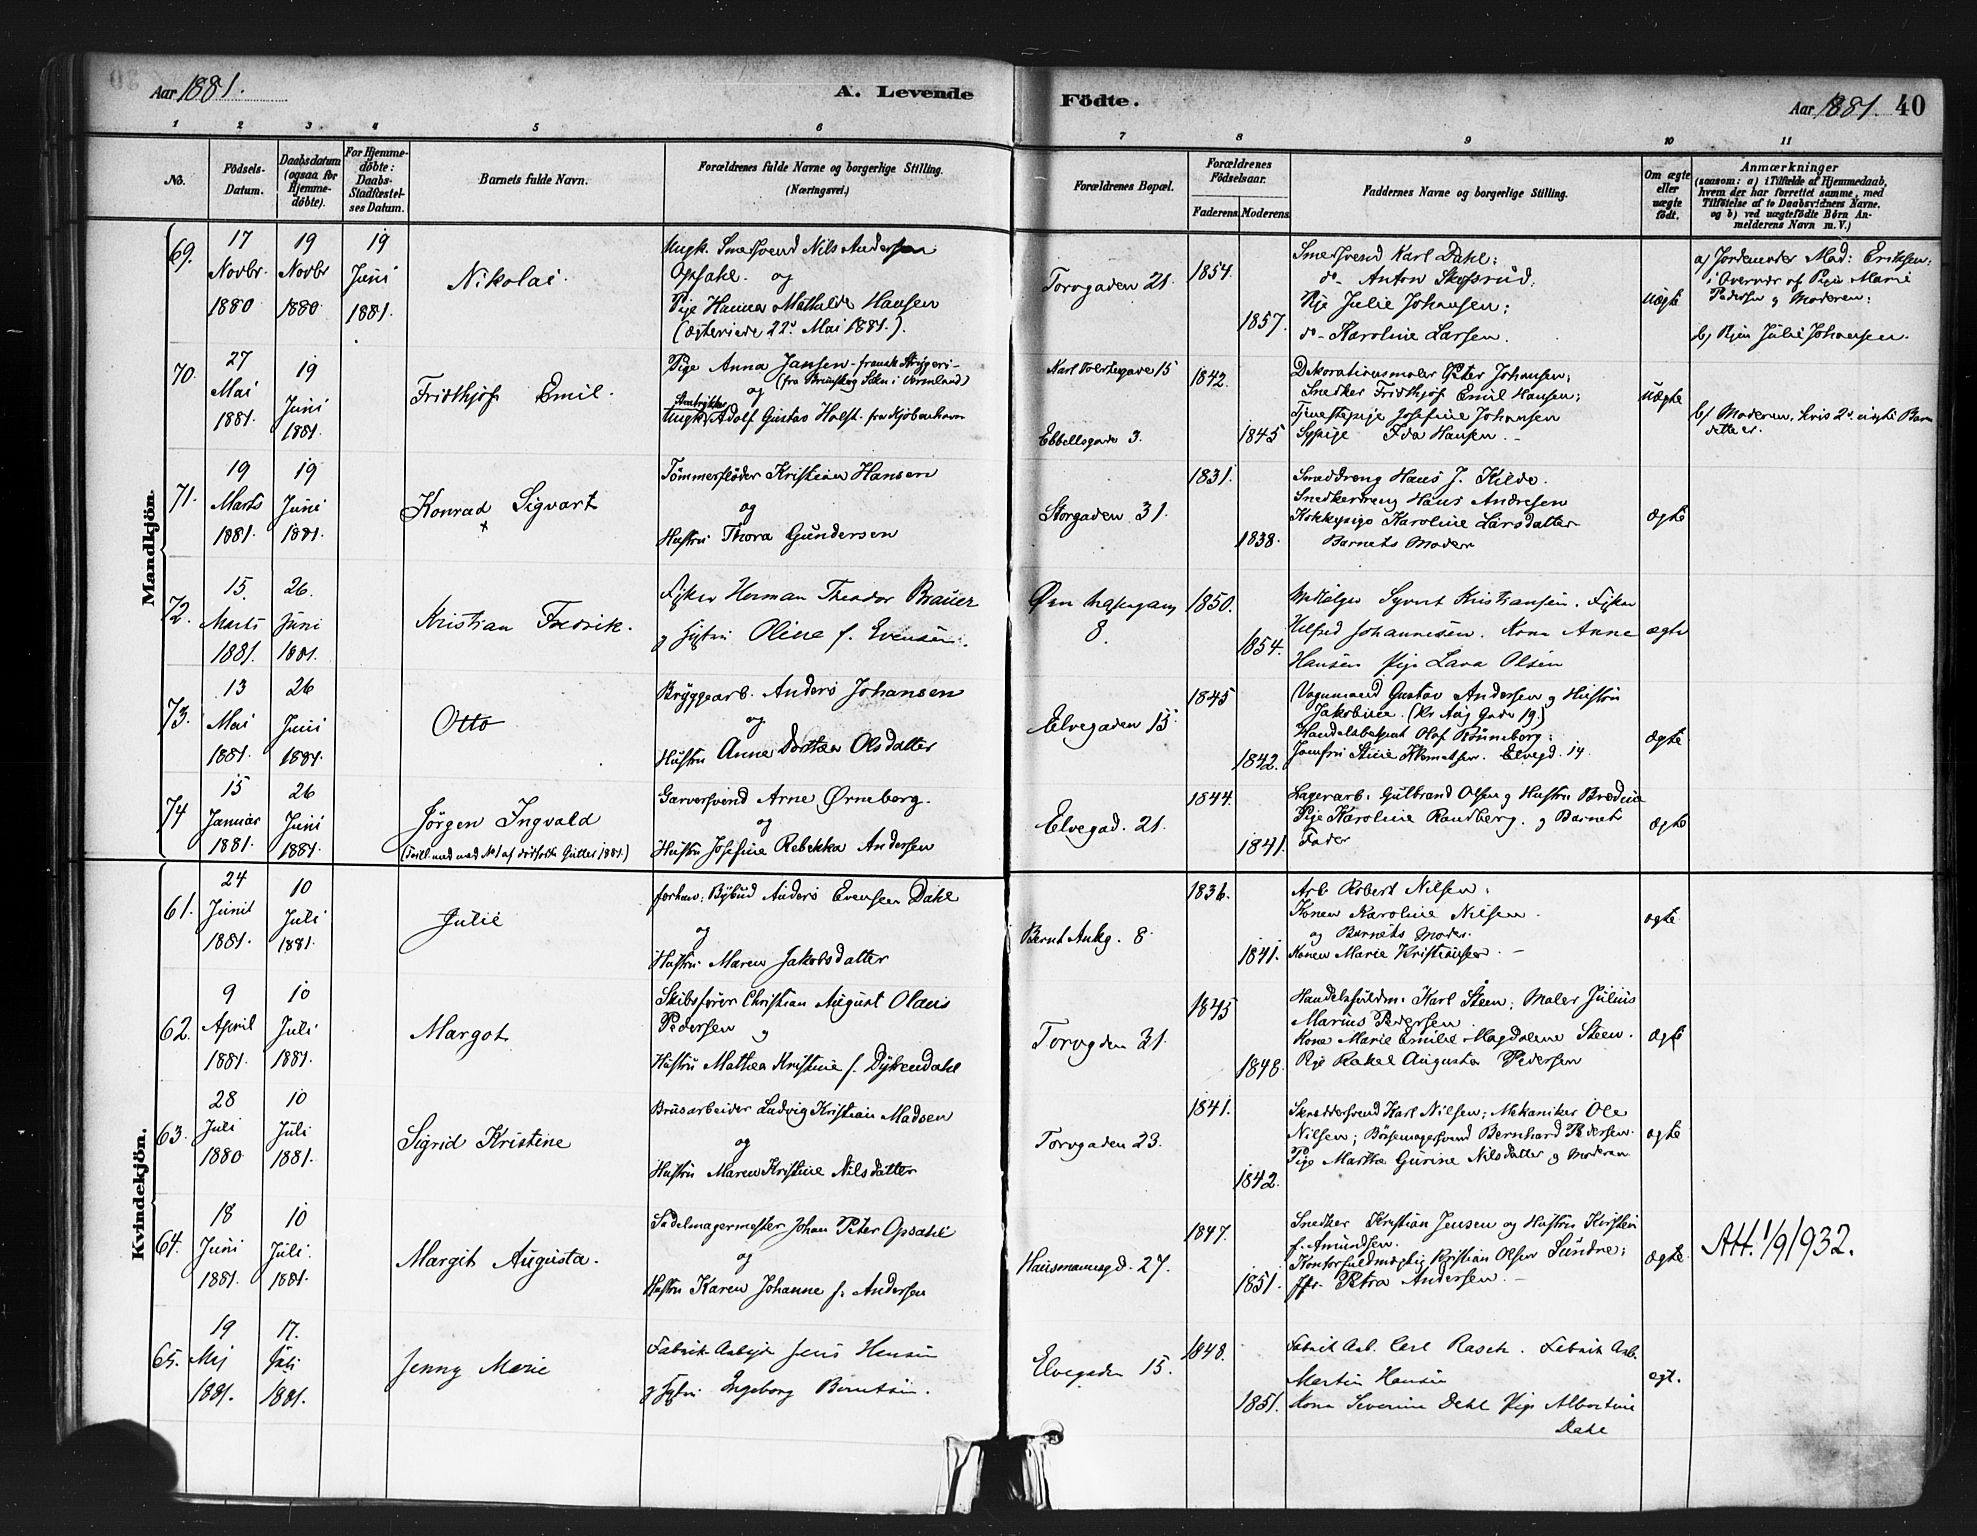 Aar 1881.
A. Levende
Födte.
Aar 1881. 40
1 2 3 4 5 6 7 8 9 10 11
No.
Födsels-
Datum.
Daabsdatum
(ogsaa for
Hjemme-
döbte).
For Hjemme-
döbte:
Daabs-
Stadfæstel-
ses Datum.
Barnets fulde Navn.
Forældrenes fulde Navne og borgerlige Stilling.
(Næringsvei.)
Forældrenes Bopæl.
Forældrenes
Födselsaar.
Faderens. Moderens.
Faddernes Navne og borgerlige Stilling.
Om ægte
eller
uægte
födt.
Anmærkninger
(saasom: a) i Tilfælde af Hjemmedaab,
hvem der har forrettet samme, med
Tilföielse af to Daabsvidners Navne.
og b) ved uægtefödte Börn An-
melderens Navn m. V.)
Mandkjön.
69.
17
Novbr.
1880
19
Novbr
1880
19
Juni
1881.
Nikolai.
Ungk. Smedsvend Nils Andersen
Opsahl. og
Pige Hanna Mathilde Hansen
(Egteviede 22d Mai 1881.).
Torvgaden 21.
1854.
1857.
Smedsvend Karl Dahl;
do- Anton Skofsrud;
Pige Julie Johansen;
do- Karoline Larsen.
Uægte
a) Jordemoder Mad: Eriksen;
i Overvær af Pigen Marie
Pedersen og Moderen;
b) Pigen Julie Johansen.
70.
27
Mai
1881.
19
Juni
1881.
Fridthjof Emil.
Pige Anna Jansen - fransk Strygeri-
(fra Brunskog Sokn i Vermland)
og
Ungk. Adolf Gustav Holst. fra Kjøbenhavn
15
Ebbellsgade 3.
1842.
1845
Dekorationsmaler Peter Johansen;
Snedker Fridthjof Emil Hansen;
Tjenestepige Josefine Johansen
Sypige Ida Hansen.
Uægte
b) Moderen, hvis 2d uægte Barn
dette er.
71.
19
Marts
1881.
19
Juni
1881.
Konrad Sigvart
Tömmerflöder Kristian Hansen
og
Hustru Thora Gundersen
Storgaden 31.
1831.
1838.
Smeddreng Hans J. Kilde.
Snedkerdreng Hans Andresen
Kokkepige Karoline Larsdatter
Barnets Moder
Ægte
72.
15.
Marts
1881.
26.
Juni
1881.
Kristian Fredrik.
Herman Theodor Brauer
g Hustru Oline f. Evensen.
8.
1850.
1854.
Syvert Kristiansen.
Johannesen. Kone Anne
Hansen Pige Lava Olsen
ægte
73.
13
Mai
1881.
26
Juni
1881.
Otto
Bryggearb. Anders Johansen
og
Hustru Anne Dorthea Olsdatter
Elvegaden 15
1845
1842.
Vognmand Gustav Andersen og Hustru
Jakobine. (Kr Aug Gade 19.)
Olof Rönneborg;
Jomfru Stine Klemetsen. Elvegd. 14
Ægte
74
15
Januar
1881.
26
Juni
1881.
Jörgen Ingvald
(Tvill. med No 1 af dødfødte Gutter 1881.)
Garversvend Arne Ørneberg.
og
Hustru Josefine Rebekka Andersen
Elvegad. 21.
1844.
1841.
Lagerarb. Gulbrand Olsen og Hustru
Pige Karoline Randberg. og Barnets
Fader
Ægte
Kvindekjön.
61.
24
Juni
1881.
10
Juli
1881.
Julie
forhen: Bybud Anders Evensen Dahl
og
Hustru Maren Jakobsdatter
Bernt Ankg. 8.
1836.
1841.
Arb Robert Nilsen;
Konen Karoline Nilsen
og Barnets Moder.
Konen Marie Kristiansen.
ægte
62.
9
April
1881.
10
Juli
1881.
Margot
Skibsfører Christian August Olaus
Pedersen og
Hustru Mathea Kristine f. Dykendahl
Torvgden 31.
1845
1848.
Handelsfuldm. Karl Steen; Maler Julius
Marius Pedersen
Kone Marie Emilie Magdalene Steen.
Pige Rakel Augusta Pedersen
Ægte
63.
28
Juli
1880
10
Juli
1881.
Sigrid Kristine
Brusarbeider Ludvig Kristian Madsen
og
Hustru Maren Kristine Nilsdatter
Torvgaden 23.
1841.
1842.
Skræddersvend Karl Nilsen; Mekaniker Ole
Nilsen; Börsemagersvend Bernhard Pedersen.
Pige Marthe Gurine Nilsdatter og Moderen
ægte
64.
18
Juni
1881.
10
Juli.
1881.
Margit Augusta.
Sadelmagermester Johan Peter Opsahl
og
Hustru Karen Johanne f. Andersen
Hausmannsgd. 27.
1847.
1851.
Snedker Kristian Jensen og Hustru Kirstin
f. Amundsen.
Kontorfuldmægtig Kristian Olsen Sundne;
Petra Andersen.
Ægte
Att. 1/9 1932.
65.
19
Mej
1881.
17.
Juli
1881.
Jenny Marie
Fabrik Arbejd Jens Hansen
g Hustru Ingeborg Berntsen.
Elvegaden 15.
1848.
1851.
Fabrik Arb. Carl Rasch. Fabrik Arb.
Martin Hansen
Kone Severine Dahl Pige Albertine
Dahl
egt.